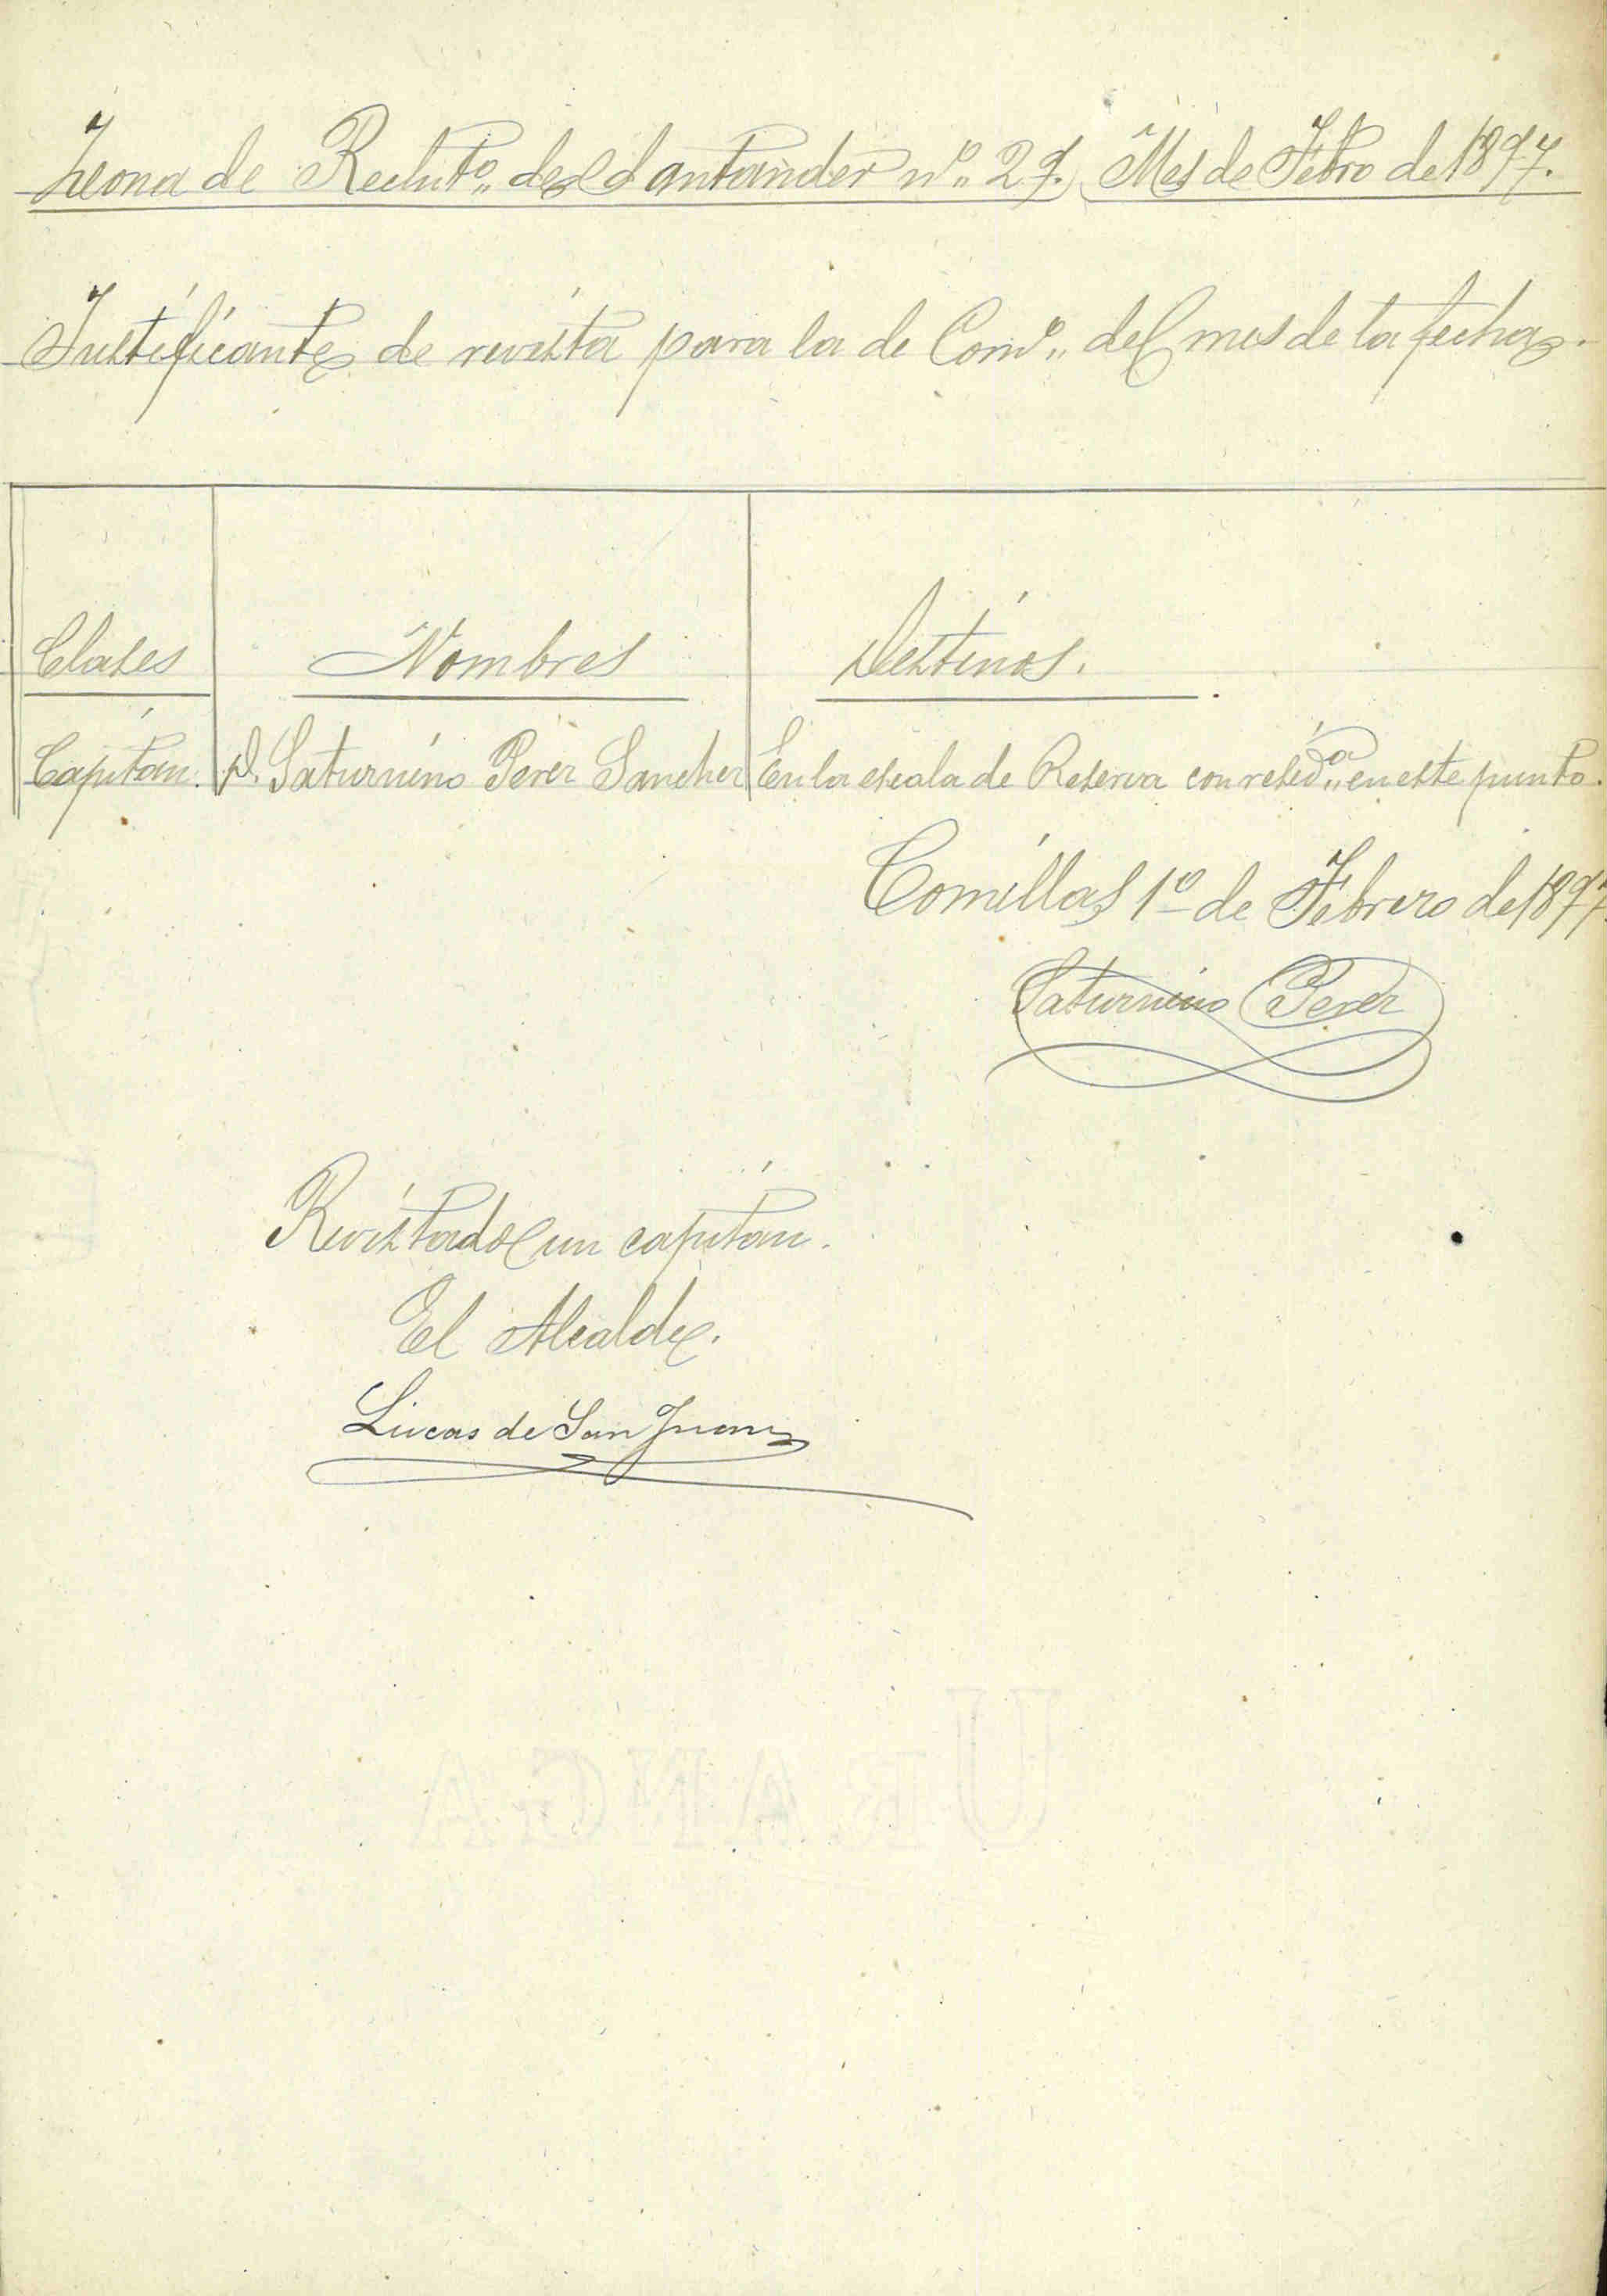 Zona de Reclutº de Santander nº 29. Mes de Febro de 1897.
Justificante de revista para la de Comº del mes de la fecha.
Clases Nombres Destinos.
Capitan. D. Saturnino Perez Sanchez En la escala de Reserva con residª en este punto.
Comillas 1º de Febrero de 1897
Saturnino Perez
Revistado un capitan.
El Alcalde.
Lucas de San Juan
URANGA